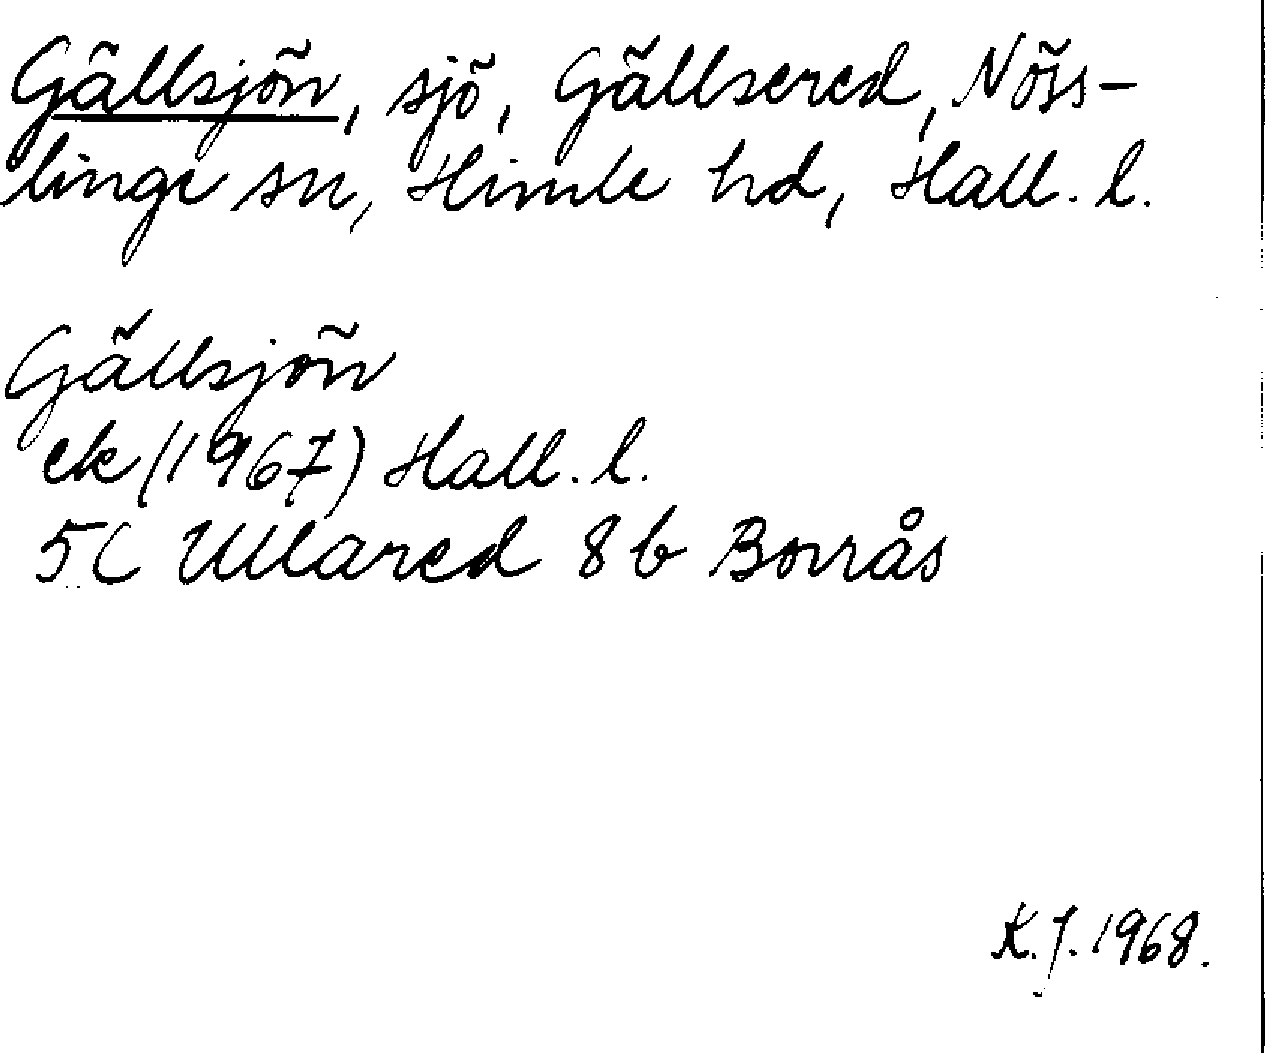 Gällsjön, sjö, Gällsered, Nöss-
linge sn, Himle hd, Hall. l.
Gällsjön
ek (1967) Hall. l.
5C Ullared 8b Borrås
K.J. 1968.